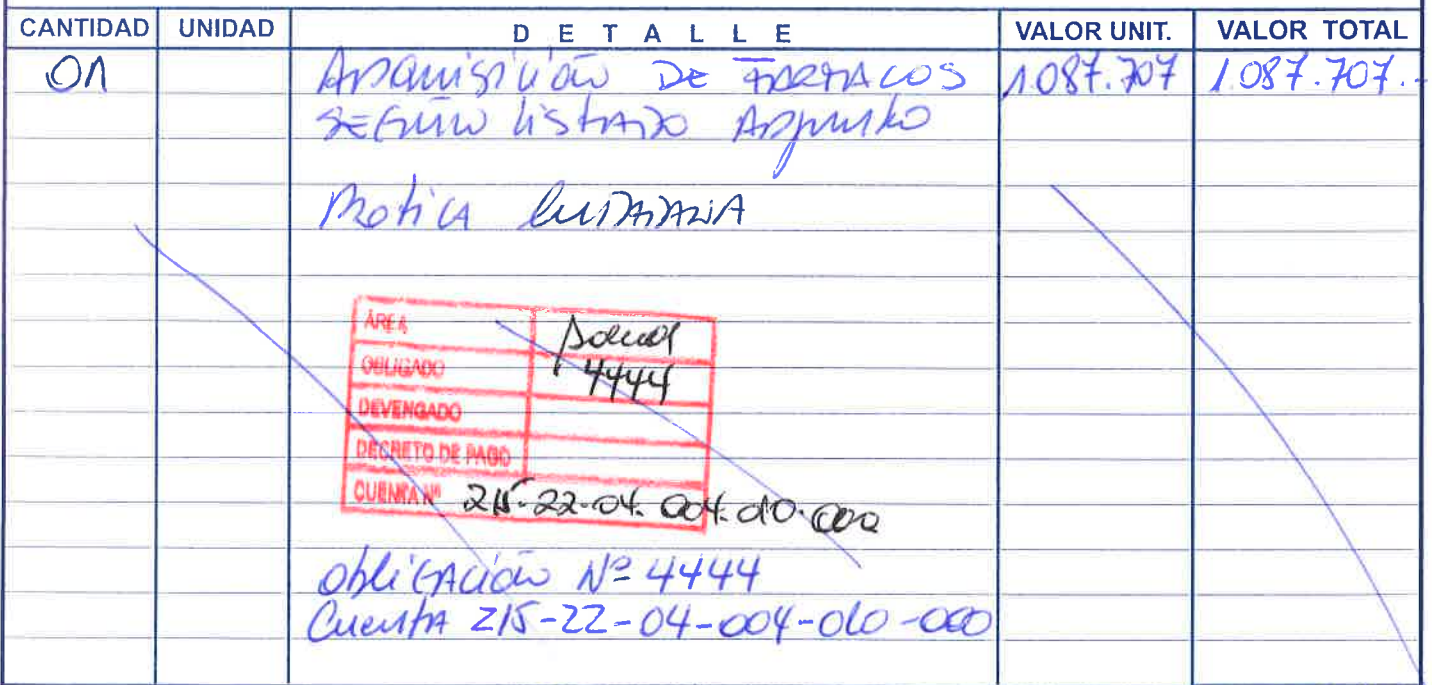 CANTIDAD UNIDAD DETALLE VALOR UNIT. VALOR TOTAL
01 Adquisición DE FARMACOS 1.087.707 1.087.707.-
SEGÚN listADO Adjunto
Botica CIUDADANA
ÁREA Salud
OBLIGADO 4444
DEVENGADO
DECRETO DE PAGO
CUENTA Nº 215-22-04-004-010-000
obliGAción Nº 4444
CuentA 215-22-04-004-010-000